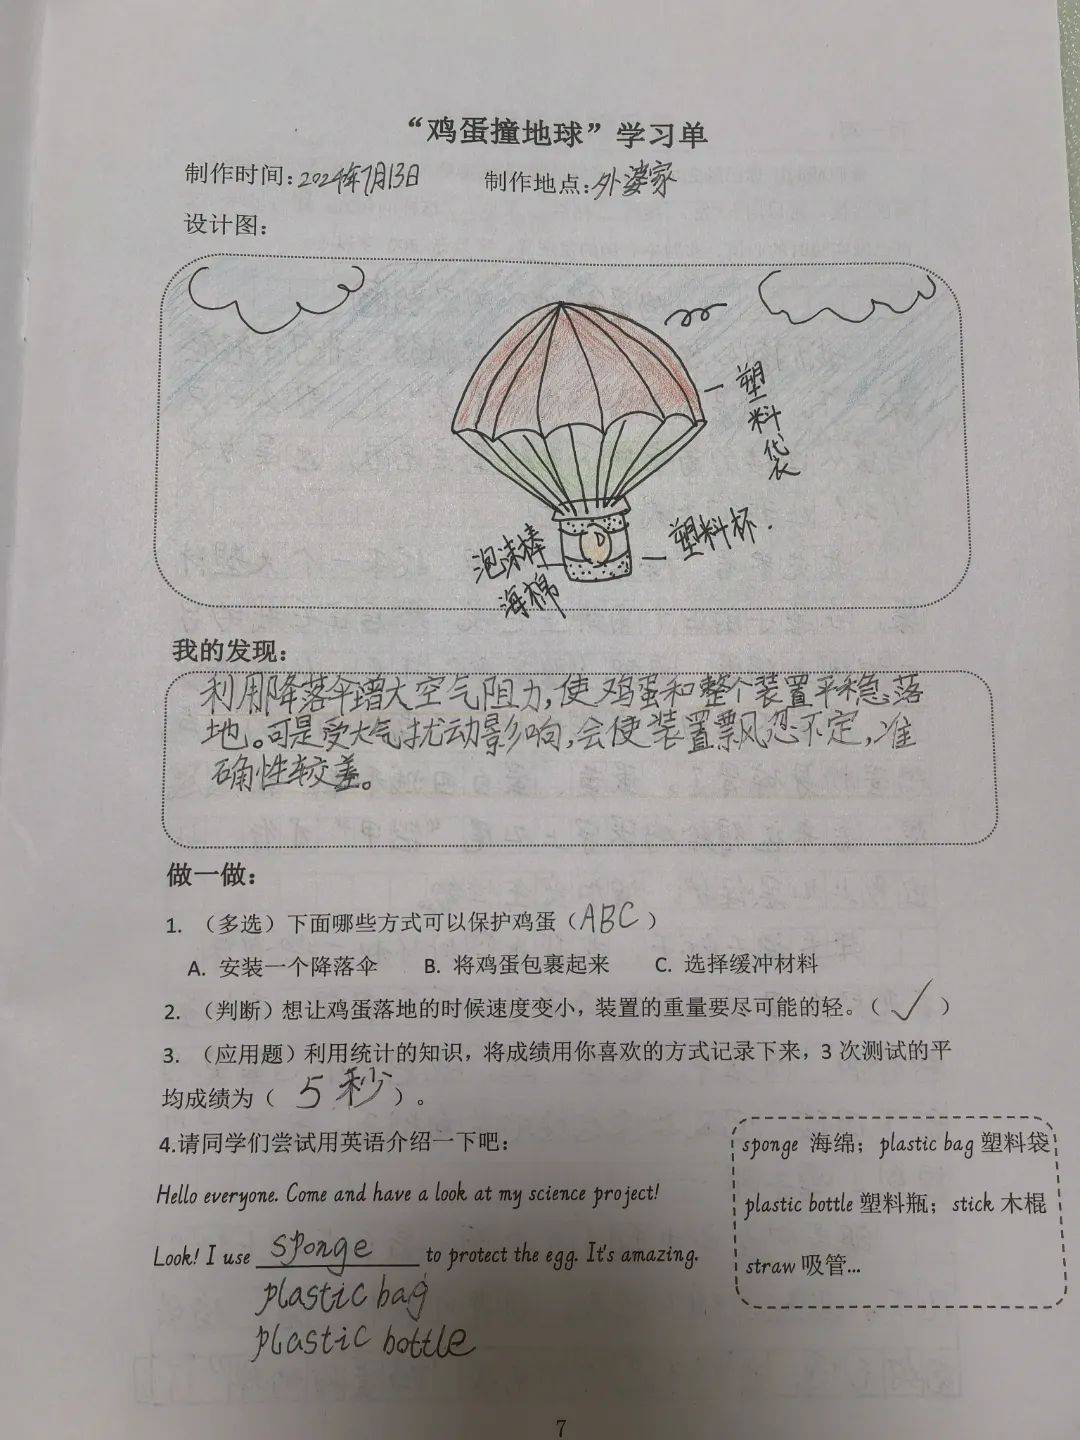 “鸡蛋撞地球”学习单
制作时间:2024年7月13日 制作地点:外婆家
设计图:
塑料袋
泡沫棒
海棉
塑料杯.
我的发现:
利用降落伞增大空气阻力,使鸡蛋和整个装置平稳落
地。可是受大气扰动影响,会使装置飘忽不定,准
确性较差。
做一做:
1. （多选）下面哪些方式可以保护鸡蛋（ABC）
A. 安装一个降落伞 B. 将鸡蛋包裹起来 C. 选择缓冲材料
2. （判断）想让鸡蛋落地的时候速度变小，装置的重量要尽可能的轻。（√）
3. （应用题）利用统计的知识，将成绩用你喜欢的方式记录下来，3 次测试的平
均成绩为（5秒）。
4.请同学们尝试用英语介绍一下吧:
Hello everyone. Come and have a look at my science project!
Look! I use sponge to protect the egg. It's amazing.
plastic bag
plastic bottle
sponge 海绵；plastic bag 塑料袋
plastic bottle 塑料瓶；stick 木棍
straw 吸管...
7